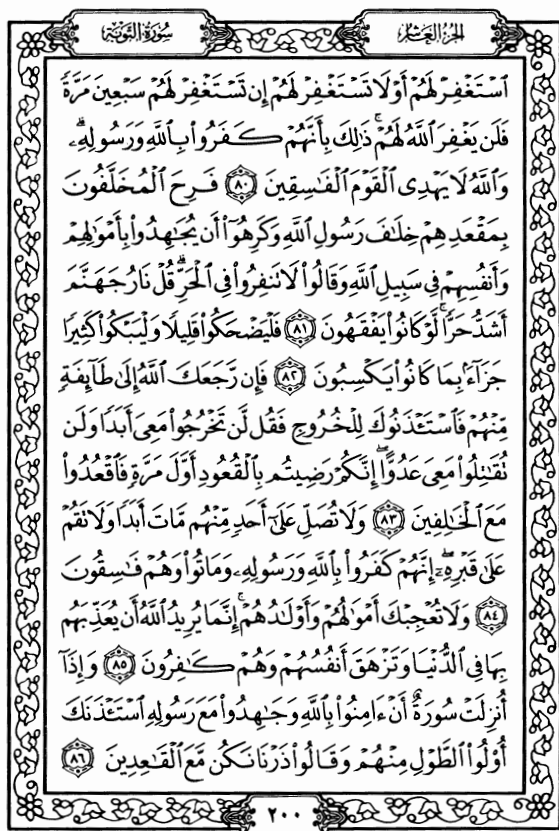 سُورَةُ التَّوْبَةِ
الجُزءُ العَاشِرُ
ٱسۡتَغۡفِرۡ لَهُمۡ أَوۡ لَا تَسۡتَغۡفِرۡ لَهُمۡ إِن تَسۡتَغۡفِرۡ لَهُمۡ سَبۡعِينَ مَرَّةٗ
فَلَن يَغۡفِرَ ٱللَّهُ لَهُمۡۚ ذَٰلِكَ بِأَنَّهُمۡ كَفَرُواْ بِٱللَّهِ وَرَسُولِهِۦۗ
وَٱللَّهُ لَا يَهۡدِى ٱلۡقَوۡمَ ٱلۡفَٰسِقِينَ ٨٠ فَرِحَ ٱلۡمُخَلَّفُونَ
بِمَقۡعَدِهِمۡ خِلَٰفَ رَسُولِ ٱللَّهِ وَكَرِهُوٓاْ أَن يُجَٰهِدُواْ بِأَمۡوَٰلِهِمۡ
وَأَنفُسِهِمۡ فِى سَبِيلِ ٱللَّهِ وَقَالُواْ لَا تَنفِرُواْ فِى ٱلۡحَرِّۗ قُلۡ نَارُ جَهَنَّمَ
أَشَدُّ حَرّٗاۚ لَّوۡ كَانُواْ يَفۡقَهُونَ ٨١ فَلۡيَضۡحَكُواْ قَلِيلٗا وَلۡيَبۡكُواْ كَثِيرٗا
جَزَآءَۢ بِمَا كَانُواْ يَكۡسِبُونَ ٨٢ فَإِن رَّجَعَكَ ٱللَّهُ إِلَىٰ طَآئِفَةٖ
مِّنۡهُمۡ فَٱسۡتَـٔۡذَنُوكَ لِلۡخُرُوجِ فَقُل لَّن تَخۡرُجُواْ مَعِىَ أَبَدٗا وَلَن
تُقَٰتِلُواْ مَعِىَ عَدُوًّاۖ إِنَّكُمۡ رَضِيتُم بِٱلۡقُعُودِ أَوَّلَ مَرَّةٖ فَٱقۡعُدُواْ
مَعَ ٱلۡخَٰلِفِينَ ٨٣ وَلَا تُصَلِّ عَلَىٰٓ أَحَدٖ مِّنۡهُم مَّاتَ أَبَدٗا وَلَا تَقُمۡ
عَلَىٰ قَبۡرِهِۦٓۖ إِنَّهُمۡ كَفَرُواْ بِٱللَّهِ وَرَسُولِهِۦ وَمَاتُواْ وَهُمۡ فَٰسِقُونَ
٨٤ وَلَا تُعۡجِبۡكَ أَمۡوَٰلُهُمۡ وَأَوۡلَٰدُهُمۡۚ إِنَّمَا يُرِيدُ ٱللَّهُ أَن يُعَذِّبَهُم
بِهَا فِى ٱلدُّنۡيَا وَتَزۡهَقَ أَنفُسُهُمۡ وَهُمۡ كَٰفِرُونَ ٨٥ وَإِذَآ
أُنزِلَتۡ سُورَةٌ أَنۡ ءَامِنُواْ بِٱللَّهِ وَجَٰهِدُواْ مَعَ رَسُولِهِ ٱسۡتَـٔۡذَنَكَ
أُوْلُواْ ٱلطَّوۡلِ مِنۡهُمۡ وَقَالُواْ ذَرۡنَا نَكُن مَّعَ ٱلۡقَٰعِدِينَ ٨٦
٢٠٠